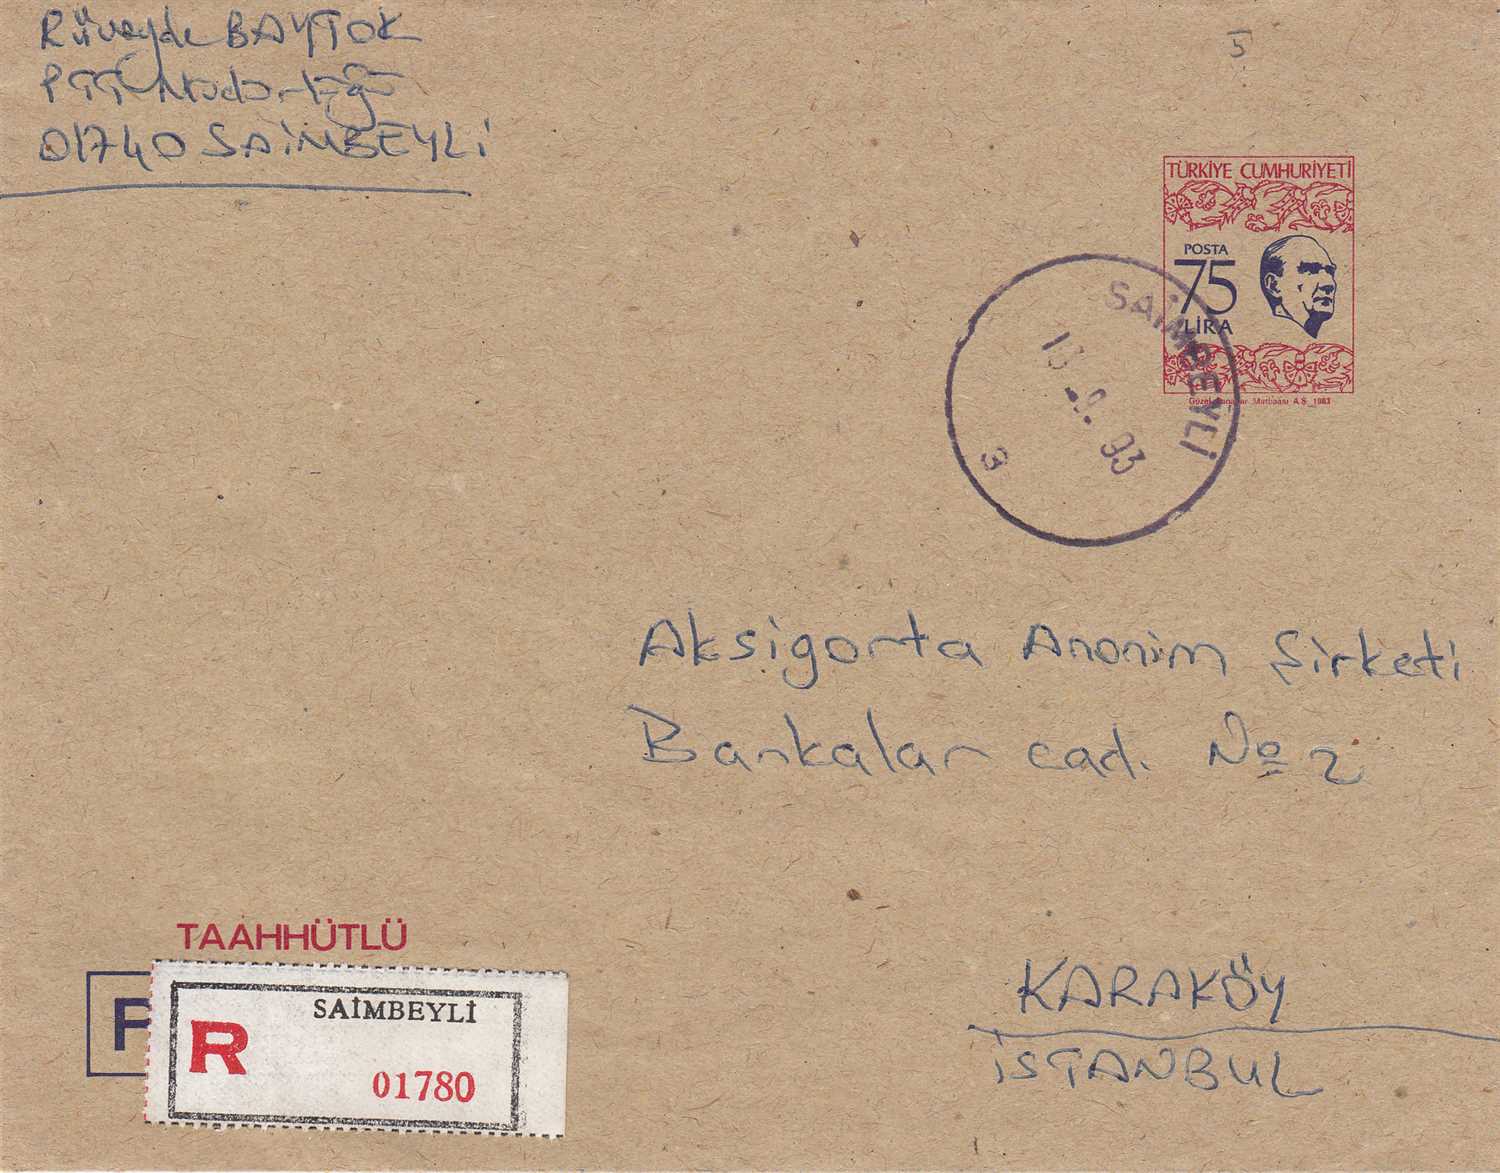 Rüveyde BAYTOK
PTT Müdürlüğü
01740 SAİMBEYLİ
5
TÜRKİYE CUMHURİYETİ
POSTA
75
LİRA
Matbaası A.Ş. 1983
SAİMBEYLİ
93
3
Aksigorta Anonim Şirketi
Bankalar cad. No 2
KARAKÖY
İSTANBUL
TAAHHÜTLÜ
SAİMBEYLİ
R
01780